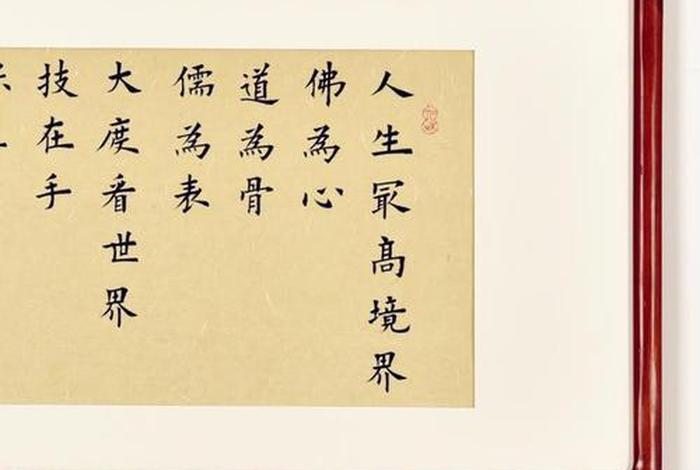 人生冣高境界
佛為心
道為骨
儒為表
大度看世界
技在手